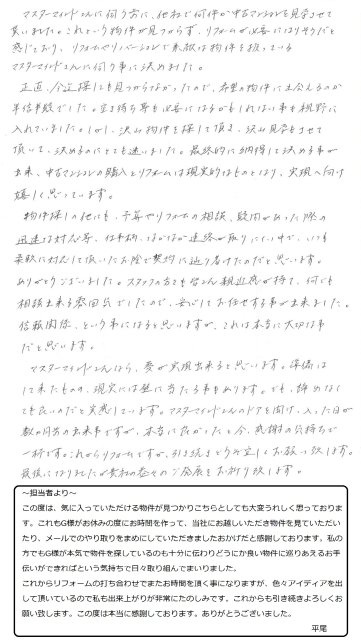 マスターマインドさんに伺う前に、他社で何件か中古マンションを見学させて
貰いました。これという物件が見つからず、リフォームが必要になりそうだと
感じており、リフォームやリノベーションで素敵な物件を扱っている
マスターマインドさんに伺う事に決めました。
正直、今迄探しても見つからなかったので、希望の物件に出会えるのか
半信半疑でした。空き待ち等も必要になるかもしれない事も視野に
入れていました。しかし、沢山物件を探して頂き、沢山見学もさせて
頂いて、決めるのにとても迷いました。最終的に納得して決める事が
出来、中古マンションの購入とリフォームは現実的なものとなり、実現へ向け
嬉しく思っています。
物件探しの他にも、予算やリフォームの相談、疑問があった際の
迅速な対応等、仕事柄、なかなか連絡が取りにくい中で、いつも
柔軟に対応して頂いたお陰で契約に辿り着けたのだと思います。
ありがとうございました。スタッフの方でも皆さん親近感が持て、何でも
相談出来る雰囲気でしたので、安心してお任せする事が出来ました。
信頼関係、という事になると思いますが、これは本当に大切な事
だと思います。
マスターマインドさんなら、夢が実現出来ると思います。準備は
して来たものの、現実には壁に当たる事もあります。でも、諦めなく
ても良いのだと実感しています。マスターマインドさんのドアを開け、入った日が
数ヶ月前の出来事ですが、本当に良かったと今、感謝の気持ちで
一杯です。これからリフォームですが、引き続きどうぞ宜しくお願い致します。
最後になりましたが貴社の益々のご発展をお祈り致します。
～担当者より～
この度は、気に入っていただける物件が見つかりこちらとしても大変うれしく思っておりま
す。これもG様がお休みの度にお時間を作って、当社にお越しいただき物件を見ていただい
たり、メールでのやり取りをまめにしていただきましたおかげだと感謝しております。私の
方でもG様が本気で物件を探しているのも十分に伝わりどうにか良い物件に巡りあえるお手
伝いができればという気持ちで日々取り組んでまいりました。
これからリフォームの打ち合わせでまたお時間を頂く事になりますが、色々アイディアを出
して頂いているので私も出来上がりが非常にたのしみです。これからも引き続きよろしくお
願い致します。この度は本当に感謝しております。ありがとうございました。
平尾